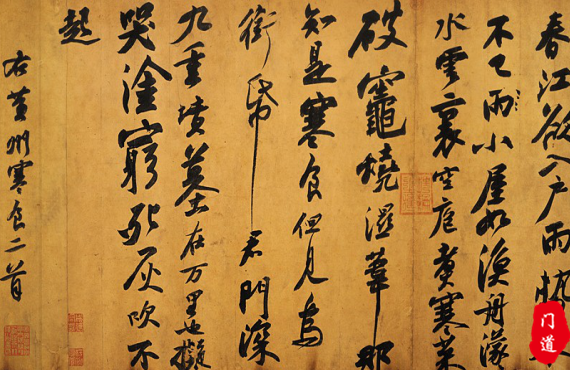 春江欲入户雨勢
不已雨小屋如漁舟濛
水雲裏空庖煮寒菜
破竈燒濕葦那
知是寒食但見烏
銜帋君門深
九重墳墓在万里也擬
哭塗窮死灰吹不
起
右黄州寒食二首
门道